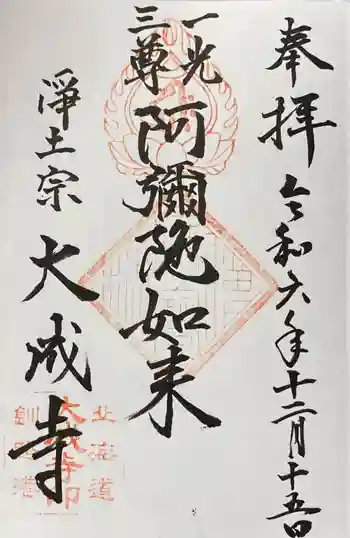 奉拝
令和六年十二月十五日
一光
三尊
阿彌陀如来
淨土宗
大成寺
北海道
大成寺印